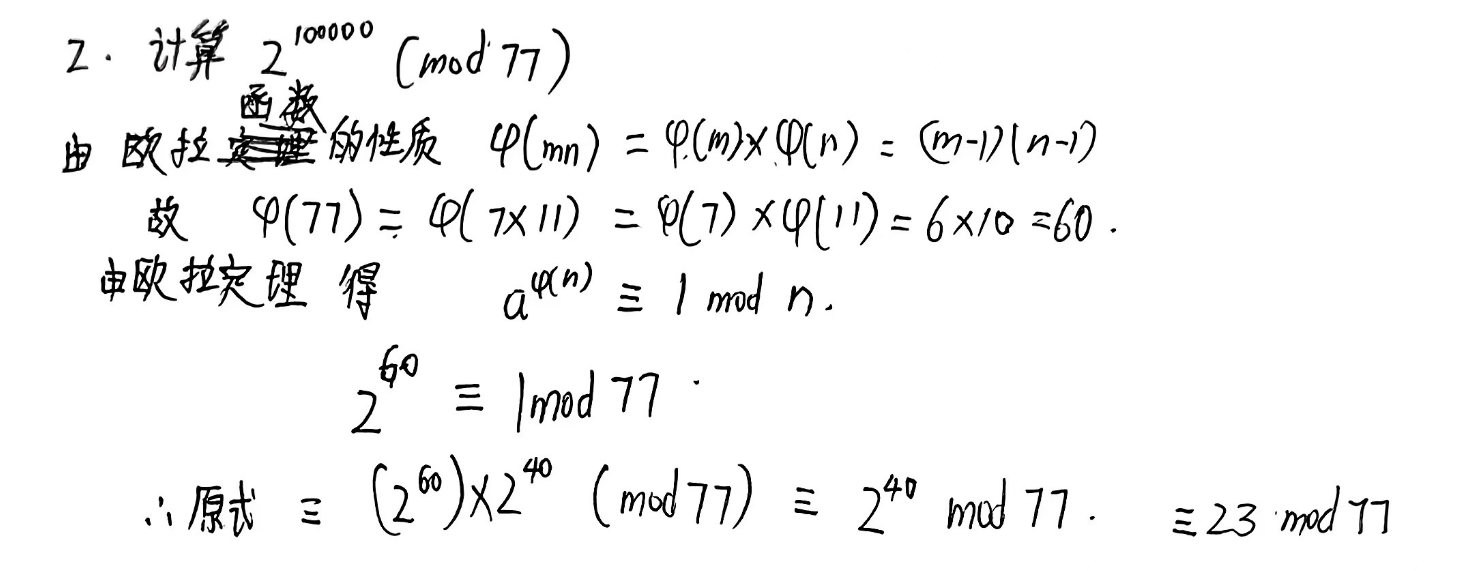 2. 计算 2^100000 (mod 77)
由欧拉函数的性质 φ(mn) = φ(m)×φ(n) = (m-1)(n-1)
故 φ(77) = φ(7×11) = φ(7)×φ(11) = 6×10 = 60.
由欧拉定理得 a^φ(n) ≡ 1 mod n.
2^60 ≡ 1 mod 77.
∴原式 ≡ (2^60)×2^40 (mod 77) ≡ 2^40 mod 77. ≡ 23 mod 77